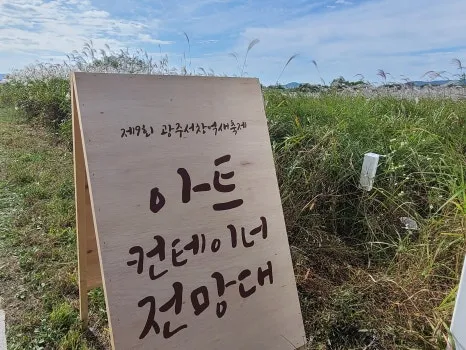 제9회 광주서창억새축제
아트
컨테이너
전망대